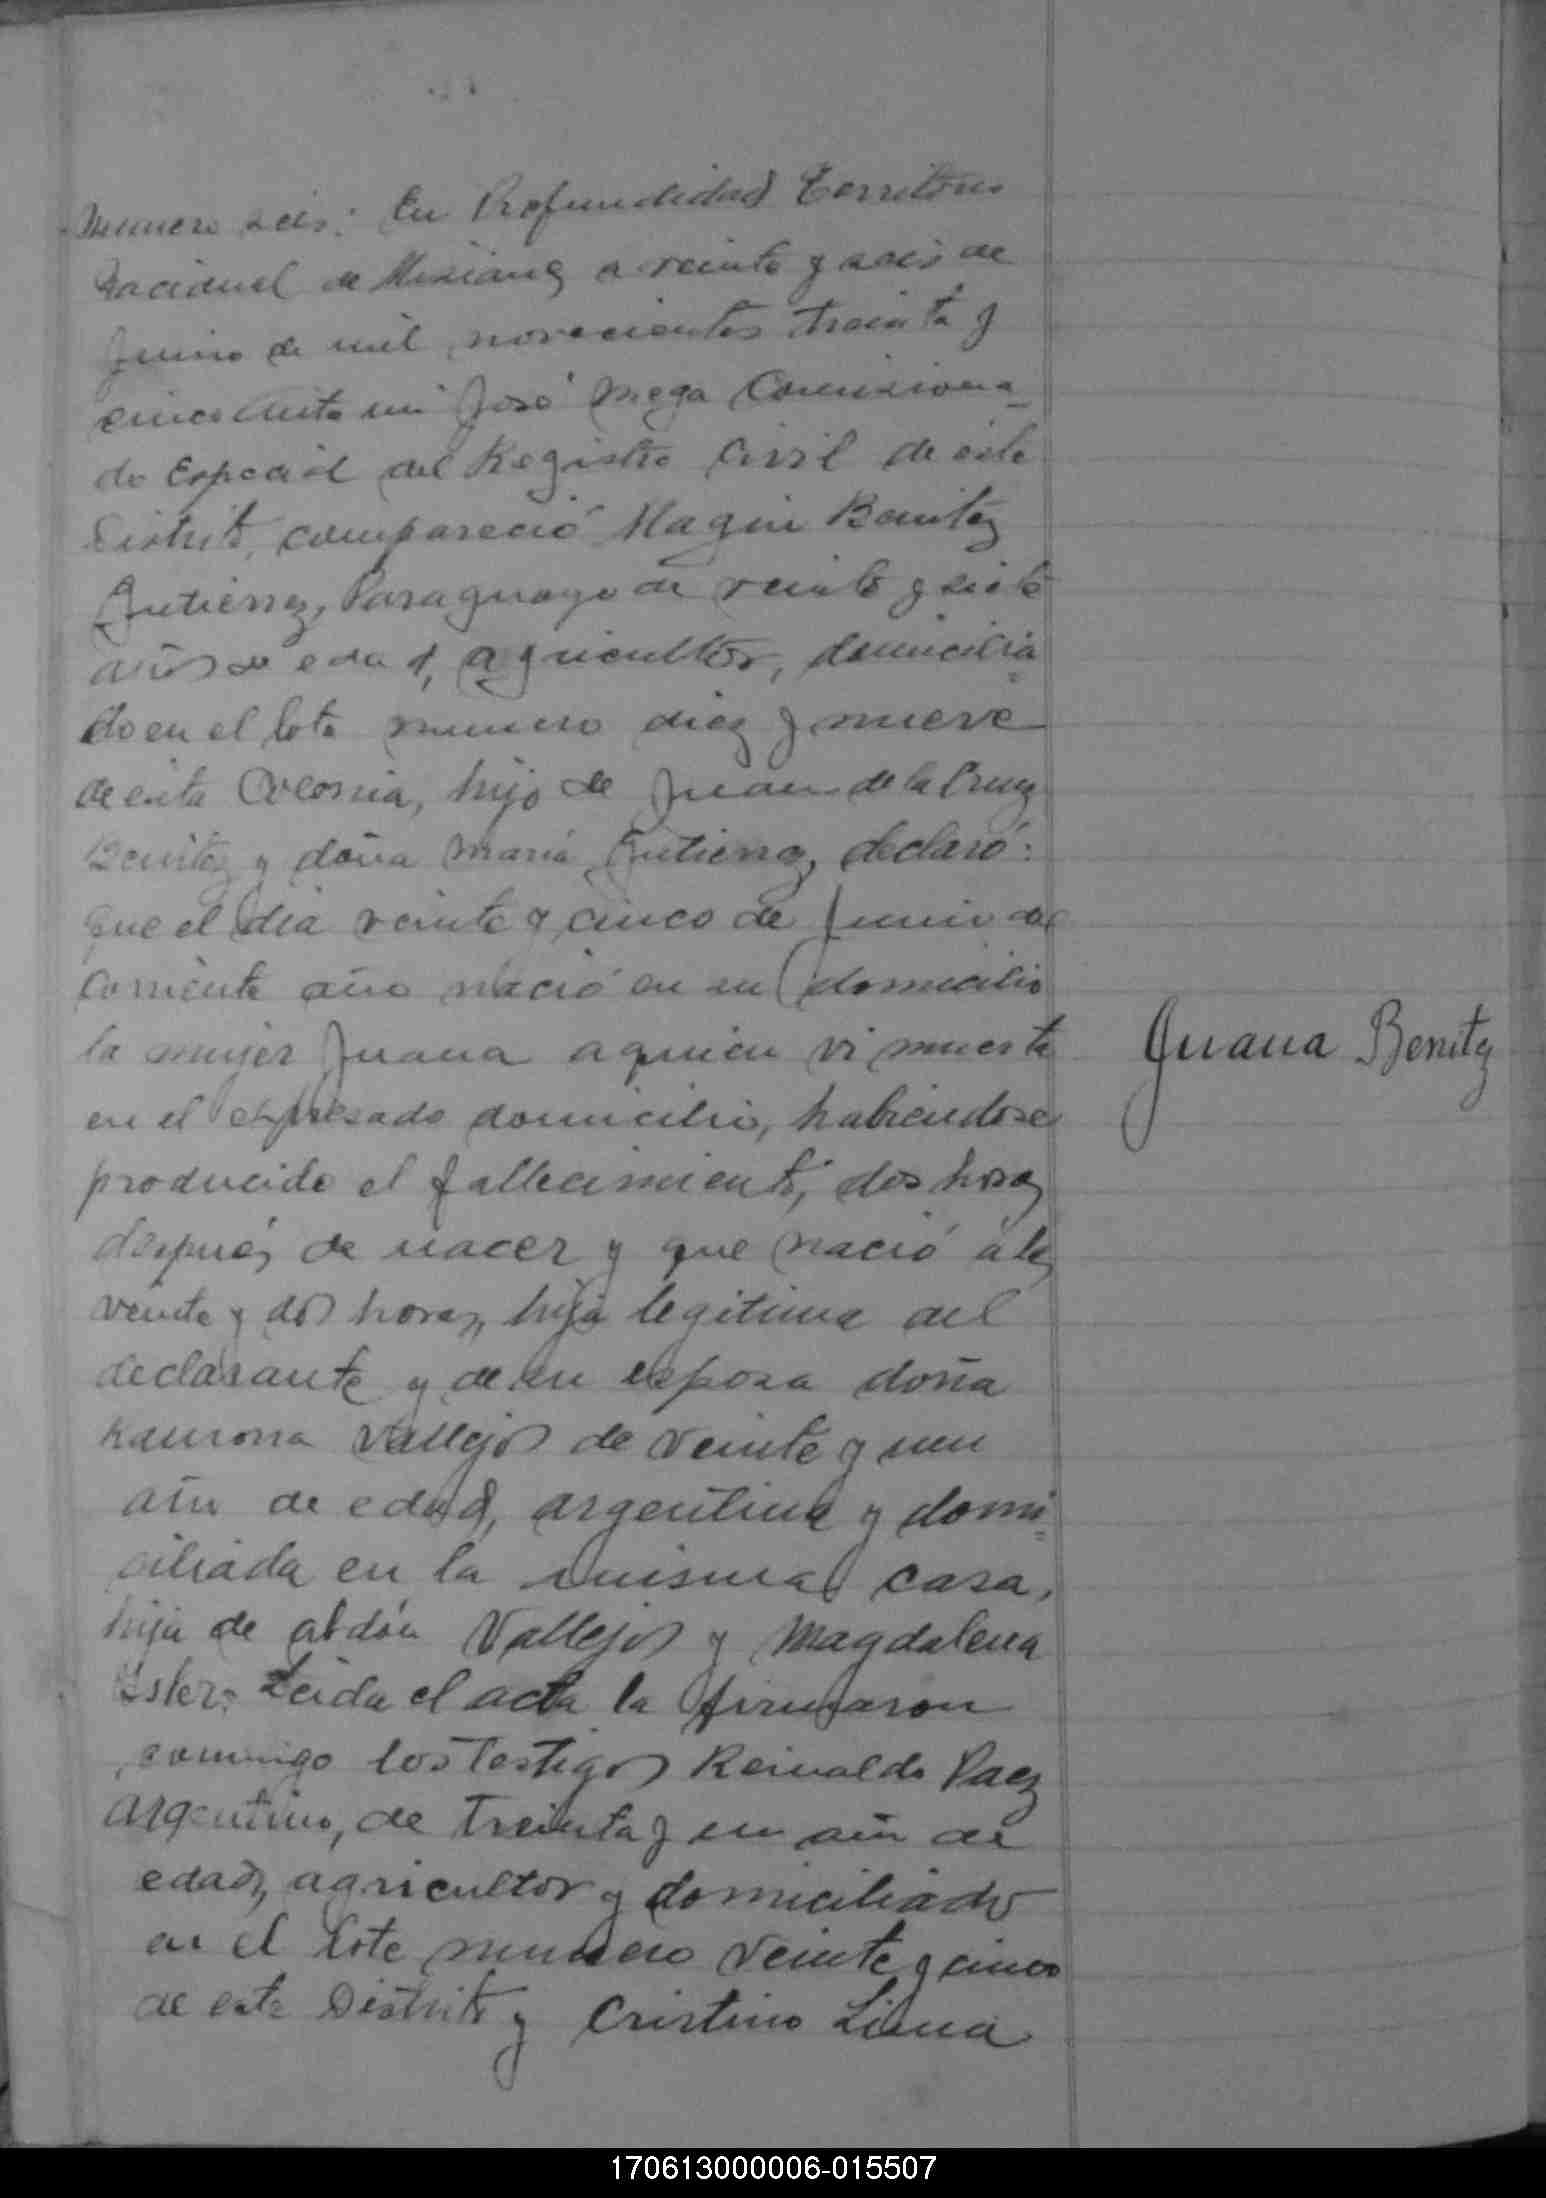 Numero seis: En Profundidad Territorio
Nacional de Misiones a veinte y seis de
Junio de mil novecientos treinta y
cinco Ante mi José Mega Comisiona
do Especial del Registro Civil de este
Distrito, compareció Magin Benitez
Gutierrez, Paraguayo de veinte y siete
años de edad, agricultor, domicilia
do en el lote numero diez y nueve
de esta Colonia, hijo de Juan de la Cruz
Benitez y doña Maria Gutierrez, declaró:
que el dia veinte y cinco de Junio del
corriente año nació en su domicilio
la mujer Juana a quien vi muerta
Juana Benitez
en el expresado domicilio, habiendose
producido el fallecimiento, dos horas
después de nacer y que nació á las
veinte y dos horas, hija legitima del
declarante y de su esposa doña
Ramona Vallejos de veinte y un
año de edad, argentina y domi
ciliada en la misma casa,
hija de abdón Vallejos y Magdalena
Ester. Leida el acta la firmaron
conmigo los Testigos Reinaldo Paez
Argentino, de Treinta y un año de
edad, agricultor y domiciliado
en el lote numero veinte y cinco
de este Distrito y Cristino Lima
170613000006-015507